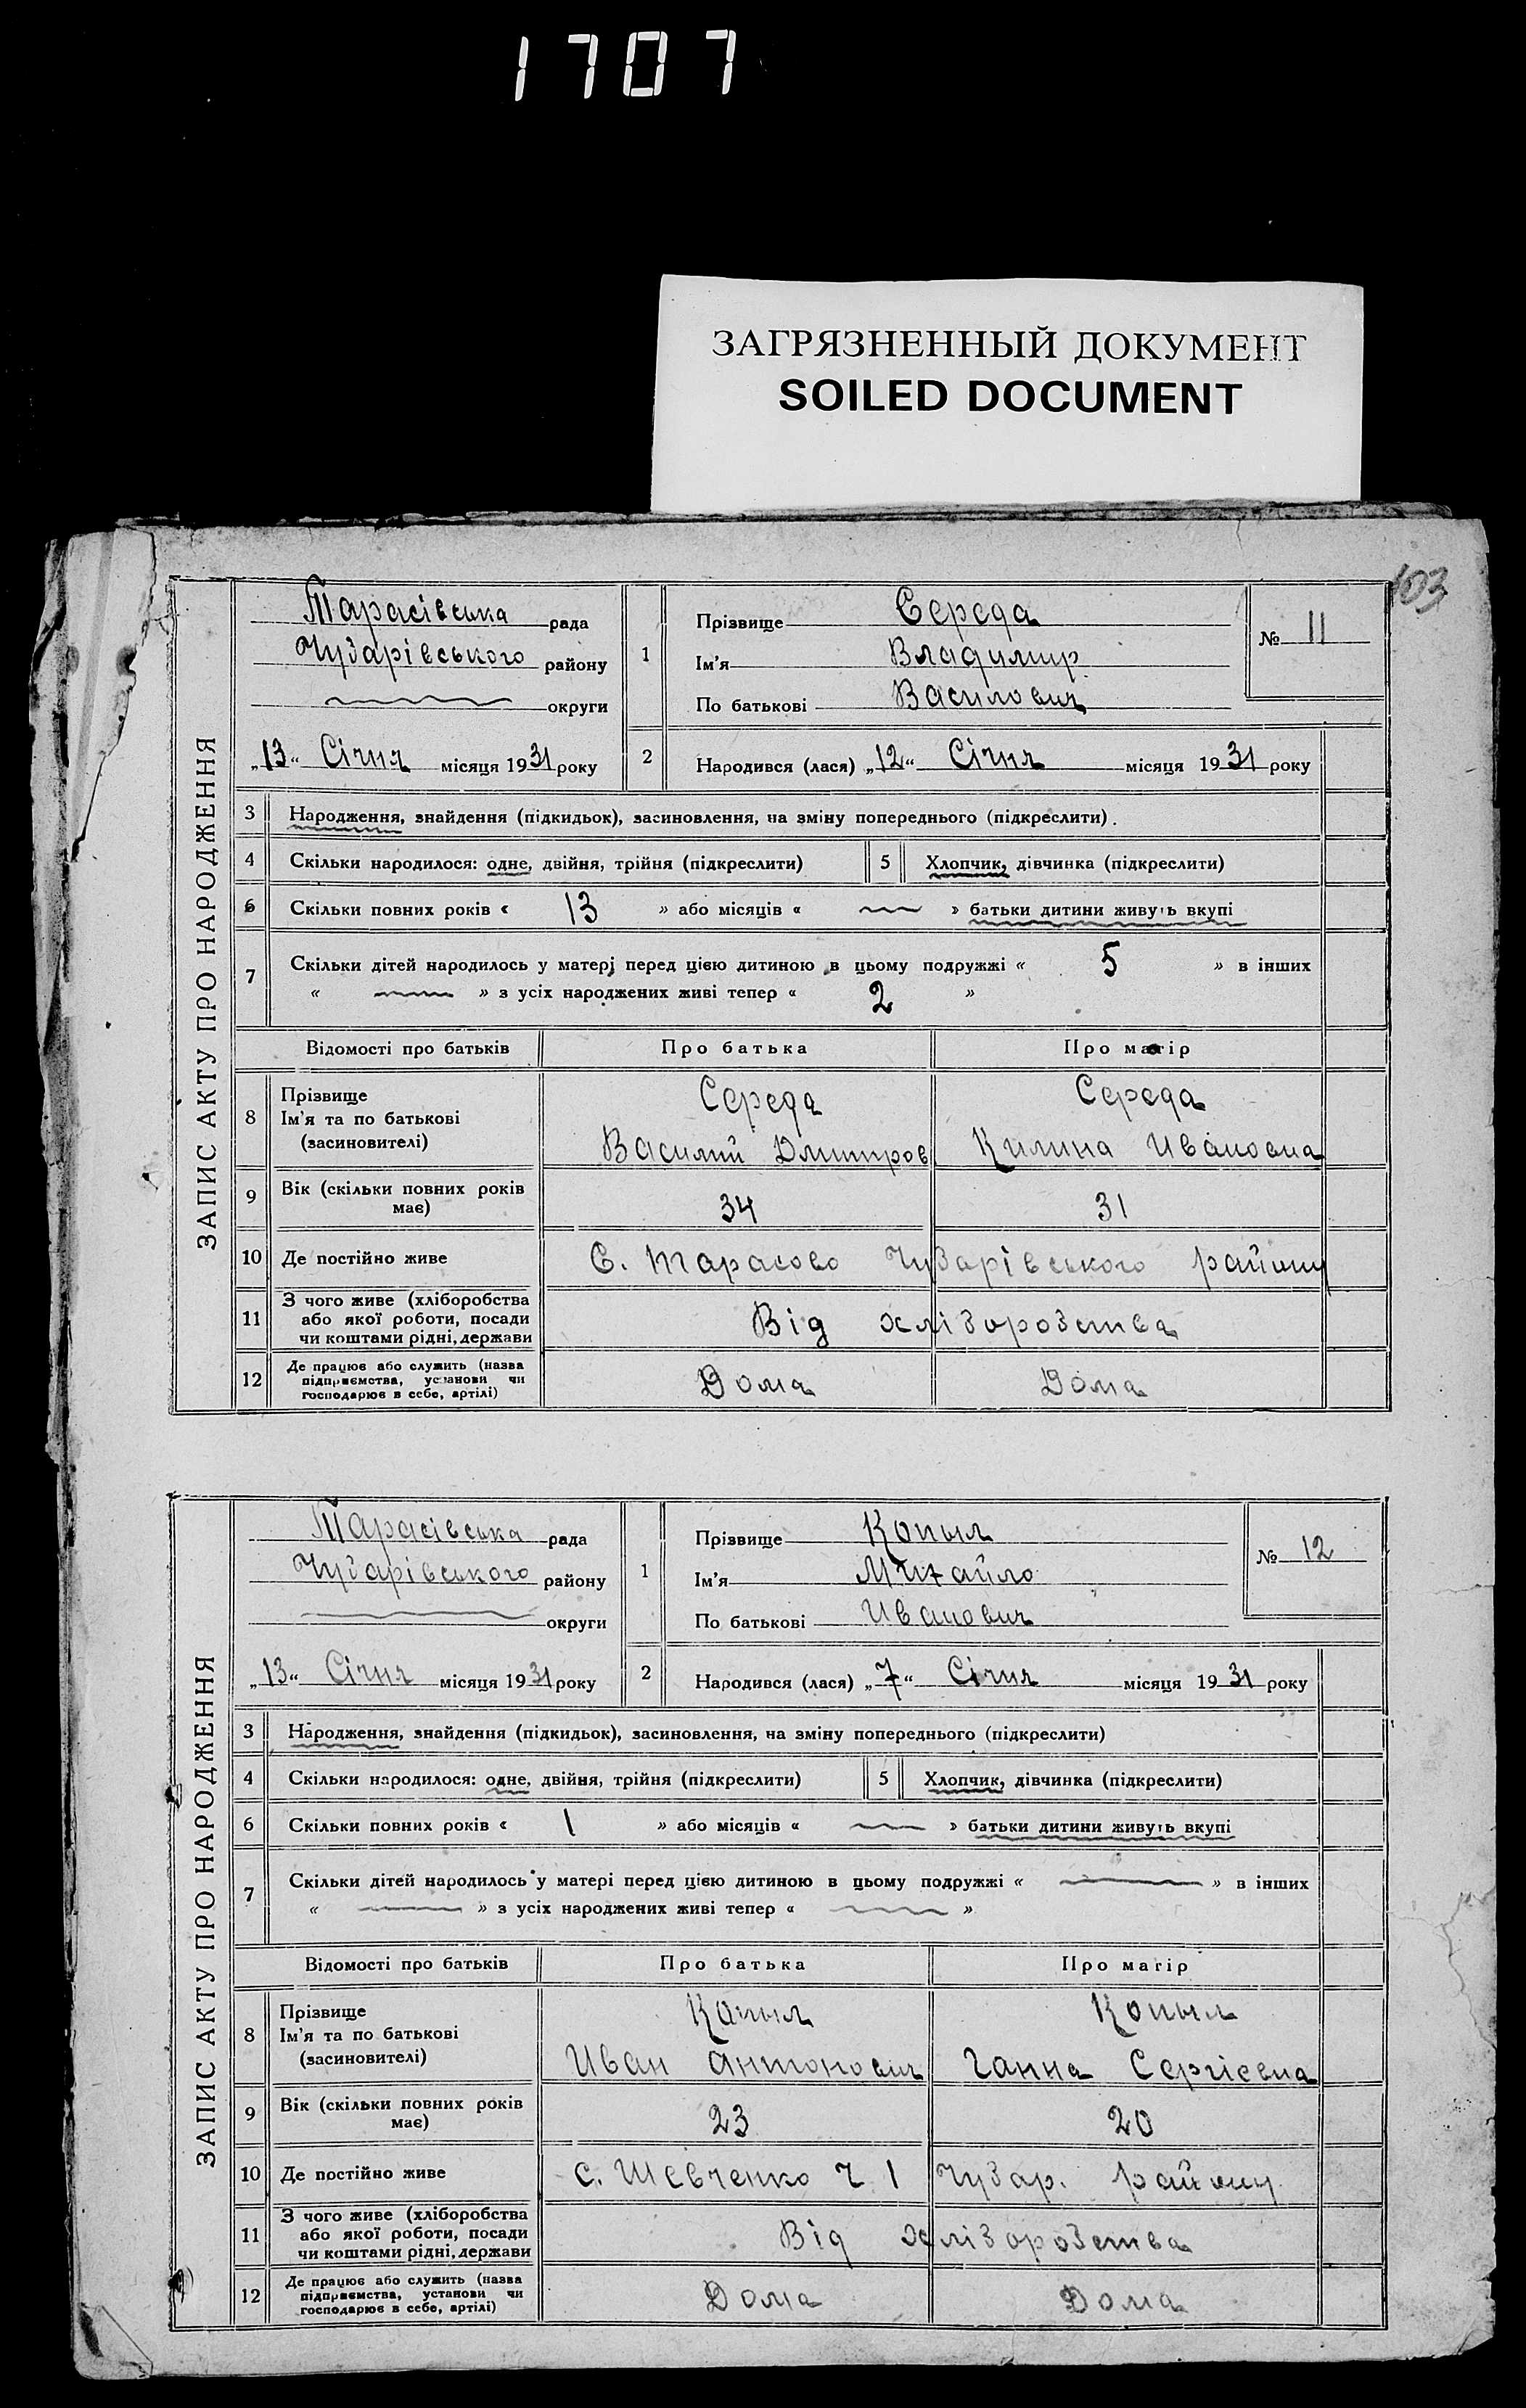 1707
ЗАГРЯЗНЕННЫЙ ДОКУМЕНТ
SOILED DOCUMENT
103
ЗАПИС АКТУ ПРО НАРОДЖЕННЯ
Тарасівська рада
Чубарівського району
округи
„13“ Січня місяця 1931 року
1 Прізвище Середа
Ім'я Владимир
По батькові Василович
№ 11
2 Народився (лася) „12“ Січня місяця 1931 року
3 Народження, знайдення (підкидьок), засиновлення, на зміну попереднього (підкреслити).
4 Скільки народилося: одне, двійня, трійня (підкреслити) 5 Хлопчик, дівчинка (підкреслити)
6 Скільки повних років « 13 » або місяців « — » батьки дитини живуть вкупі
7 Скільки дітей народилось у матері перед цією дитиною в цьому подружжі « 5 » в інших
« — » з усіх народжених живі тепер « 2 »
Відомості про батьків Про батька Про матір
8 Прізвище Середа Середа
Ім'я та по батькові
(засиновителі) Василий Дмитров Килина Ивановна
9 Вік (скільки повних років
має) 34 31
10 Де постійно живе С. Тарасово Чубарівського району
11 З чого живе (хліборобства
або якої роботи, посади Від хліборобства
чи коштами рідні, держави
12 Де працює або служить (назва
підприємства, установи чи Дома Дома
господарює в себе, артілі)
ЗАПИС АКТУ ПРО НАРОДЖЕННЯ
Тарасівська рада
Чубарівського району
округи
„13“ Січня місяця 1931 року
1 Прізвище Копыл
Ім'я Михайло
По батькові Иванович
№ 12
2 Народився (лася) „7“ Січня місяця 1931 року
3 Народження, знайдення (підкидьок), засиновлення, на зміну попереднього (підкреслити)
4 Скільки народилося: одне, двійня, трійня (підкреслити) 5 Хлопчик, дівчинка (підкреслити)
6 Скільки повних років « 1 » або місяців « — » батьки дитини живуть вкупі
7 Скільки дітей народилось у матері перед цією дитиною в цьому подружжі « — » в інших
« — » з усіх народжених живі тепер « — »
Відомості про батьків Про батька Про матір
8 Прізвище Копыл Копыл
Ім'я та по батькові
(засиновителі) Иван Антонович Ганна Сергієвна
9 Вік (скільки повних років
має) 23 20
10 Де постійно живе с. Шевченко Ч 1 Чубар. району
11 З чого живе (хліборобства
або якої роботи, посади Від хліборобства
чи коштами рідні, держави
12 Де працює або служить (назва
підприємства, установи чи Дома Дома
господарює в себе, артілі)